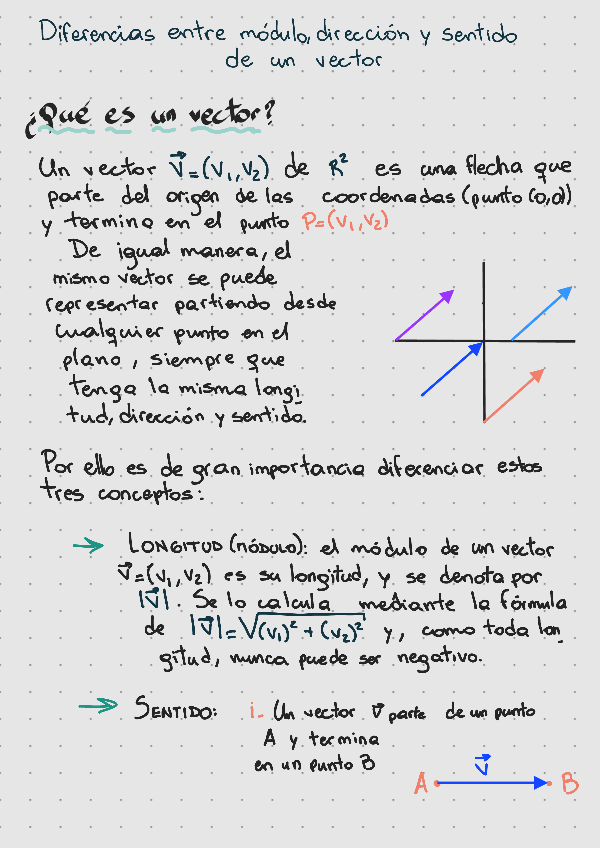 Diferencias entre módulo, dirección y sentido
de un vector
¿Qué es un vector?
Un vector v⃗=(v₁,v₂) de R² es una flecha que
parte del origen de las coordenadas (punto (0,0))
y termina en el punto P=(v₁,v₂)
De igual manera, el
mismo vector se puede
representar partiendo desde
cualquier punto en el
plano, siempre que
tenga la misma longi
tud, dirección y sentido.
Por ello es de gran importancia diferenciar estos
tres conceptos:
→ LONGITUD (MÓDULO): el módulo de un vector
v⃗=(v₁,v₂) es su longitud, y se denota por
|v⃗|. Se lo calcula mediante la fórmula
de |v⃗|=√((v₁)²+(v₂)²) y, como toda lon
gitud, nunca puede ser negativo.
→ SENTIDO: i.- Un vector v⃗ parte de un punto
A y termina
en un punto B
v⃗
A B